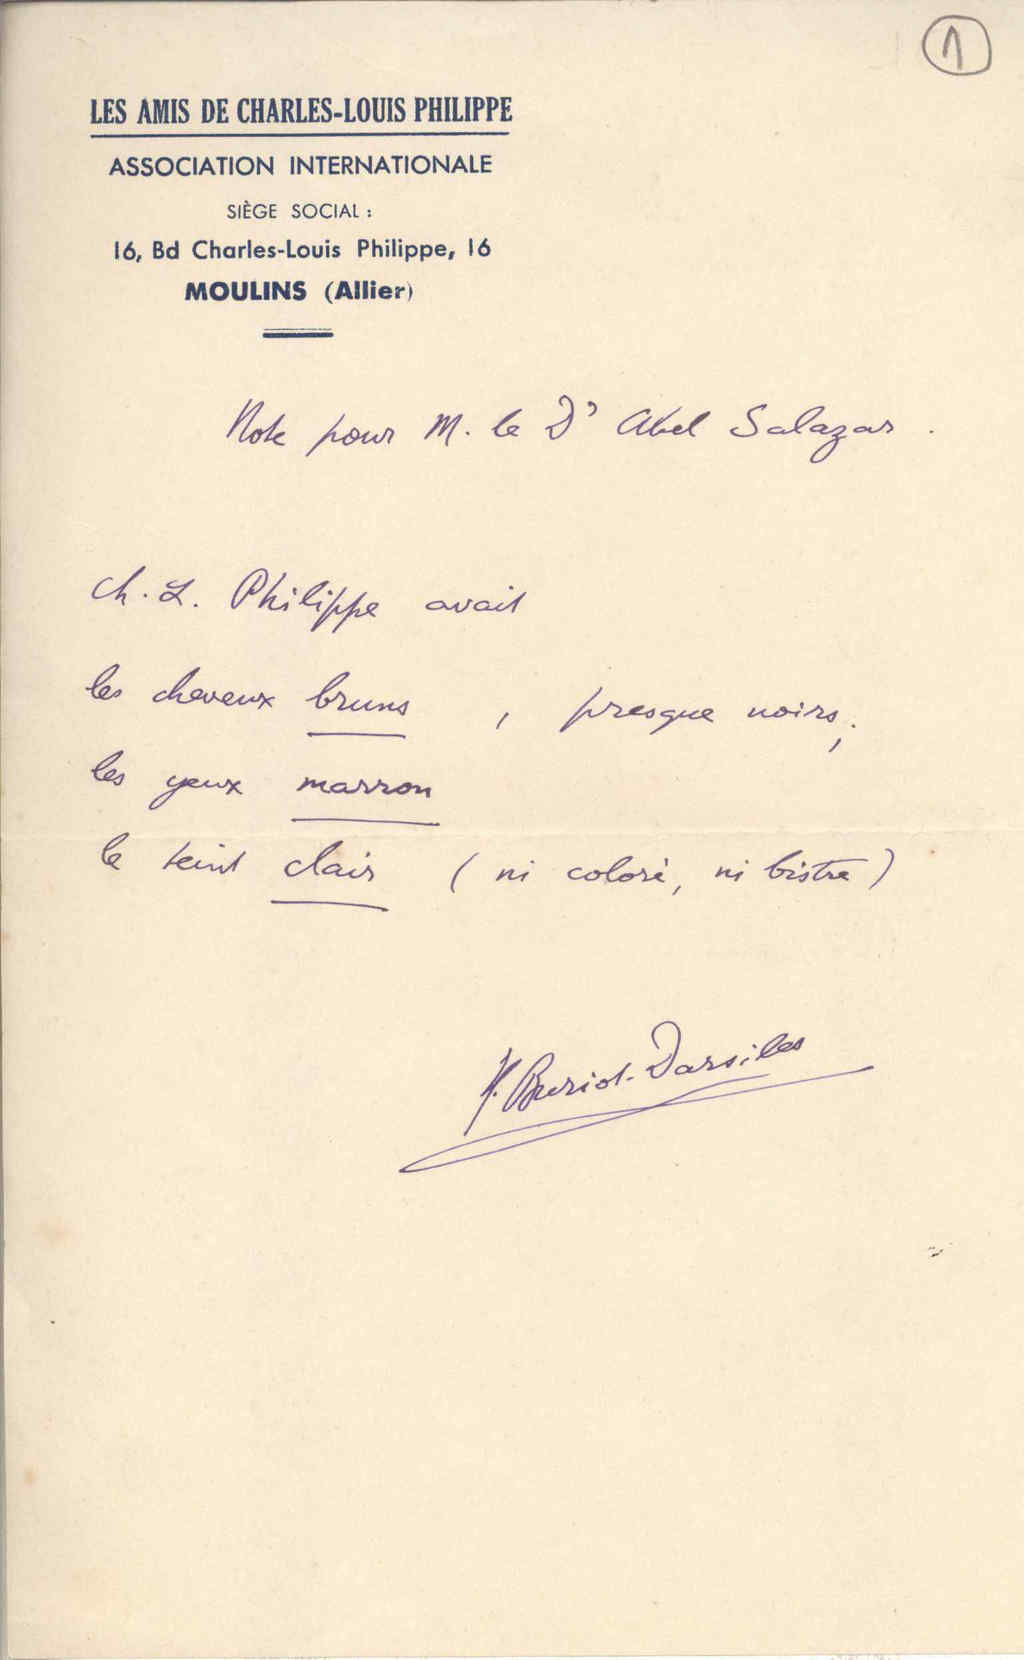 1
LES AMIS DE CHARLES-LOUIS PHILIPPE
ASSOCIATION INTERNATIONALE
SIÈGE SOCIAL :
16, Bd Charles-Louis Philippe, 16
MOULINS (Allier)
Note pour M. le Dr Abel Salazar.
Ch. L. Philippe avait
les cheveux bruns , presque noirs,
les yeux marron
le teint clair ( ni coloré, ni bistre )
H. Buriot-Darsiles